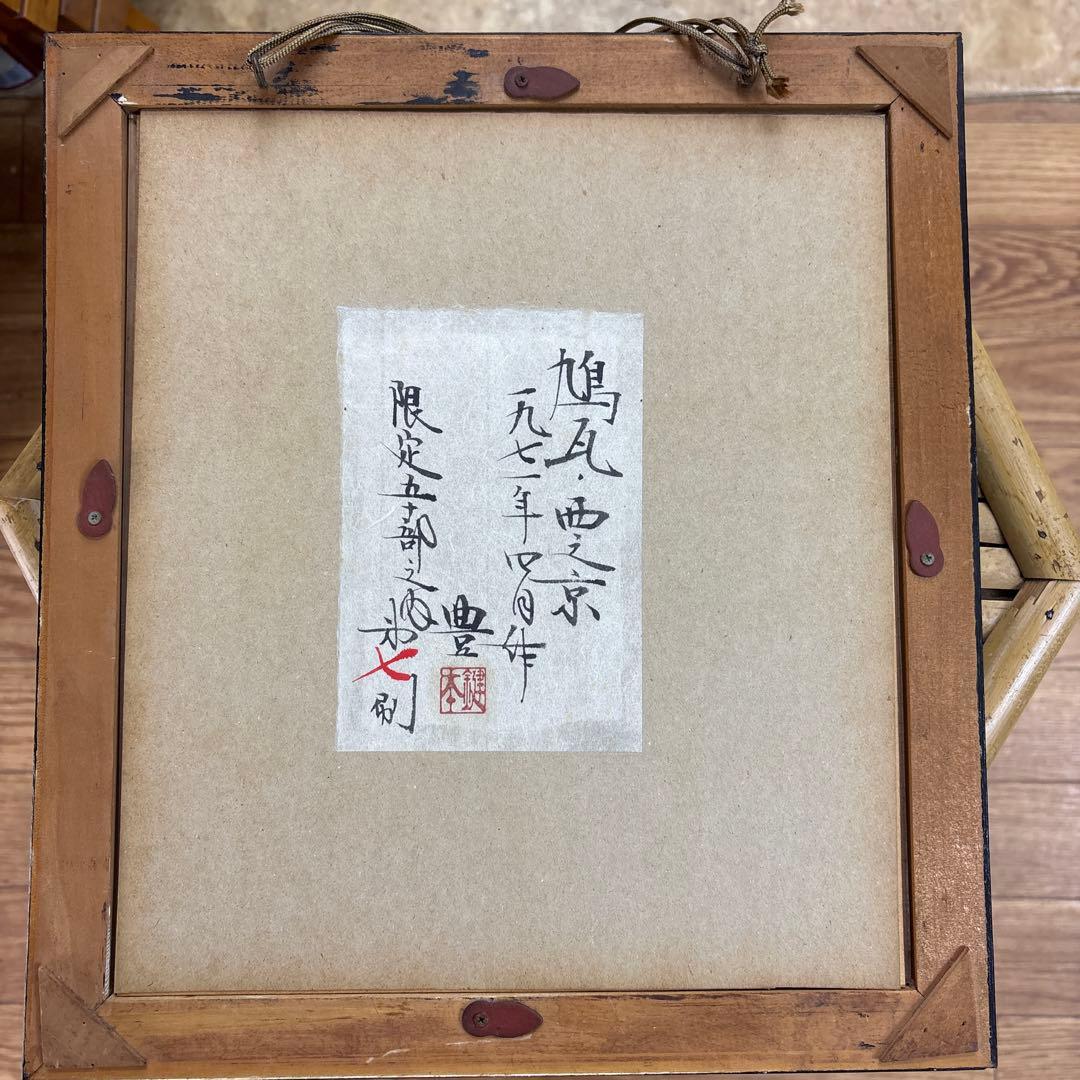 鳩瓦・西之京
一九七一年四月作
豊
鍵本
限定五十部之内
第七刷